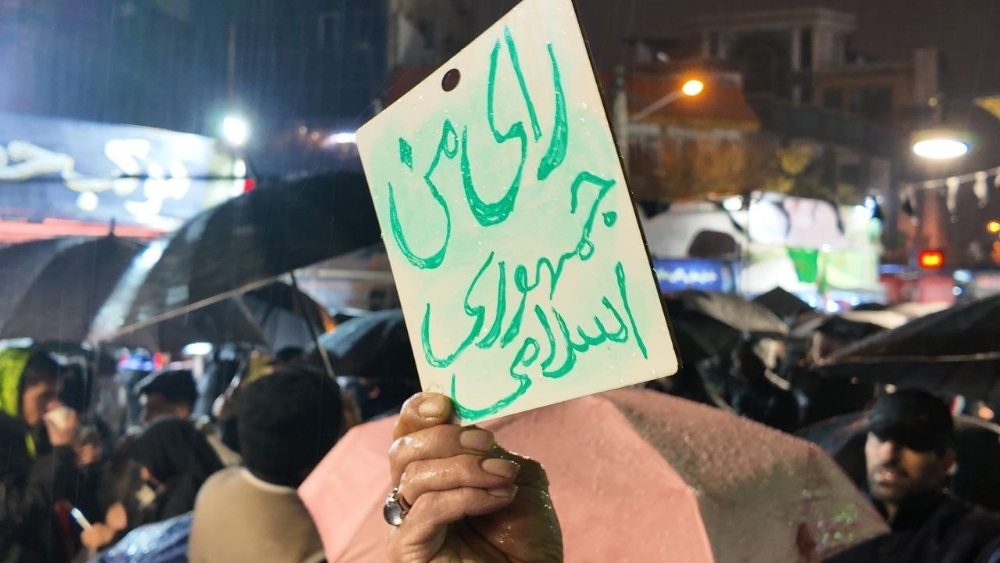 رای من
جمهوری
اسلامی